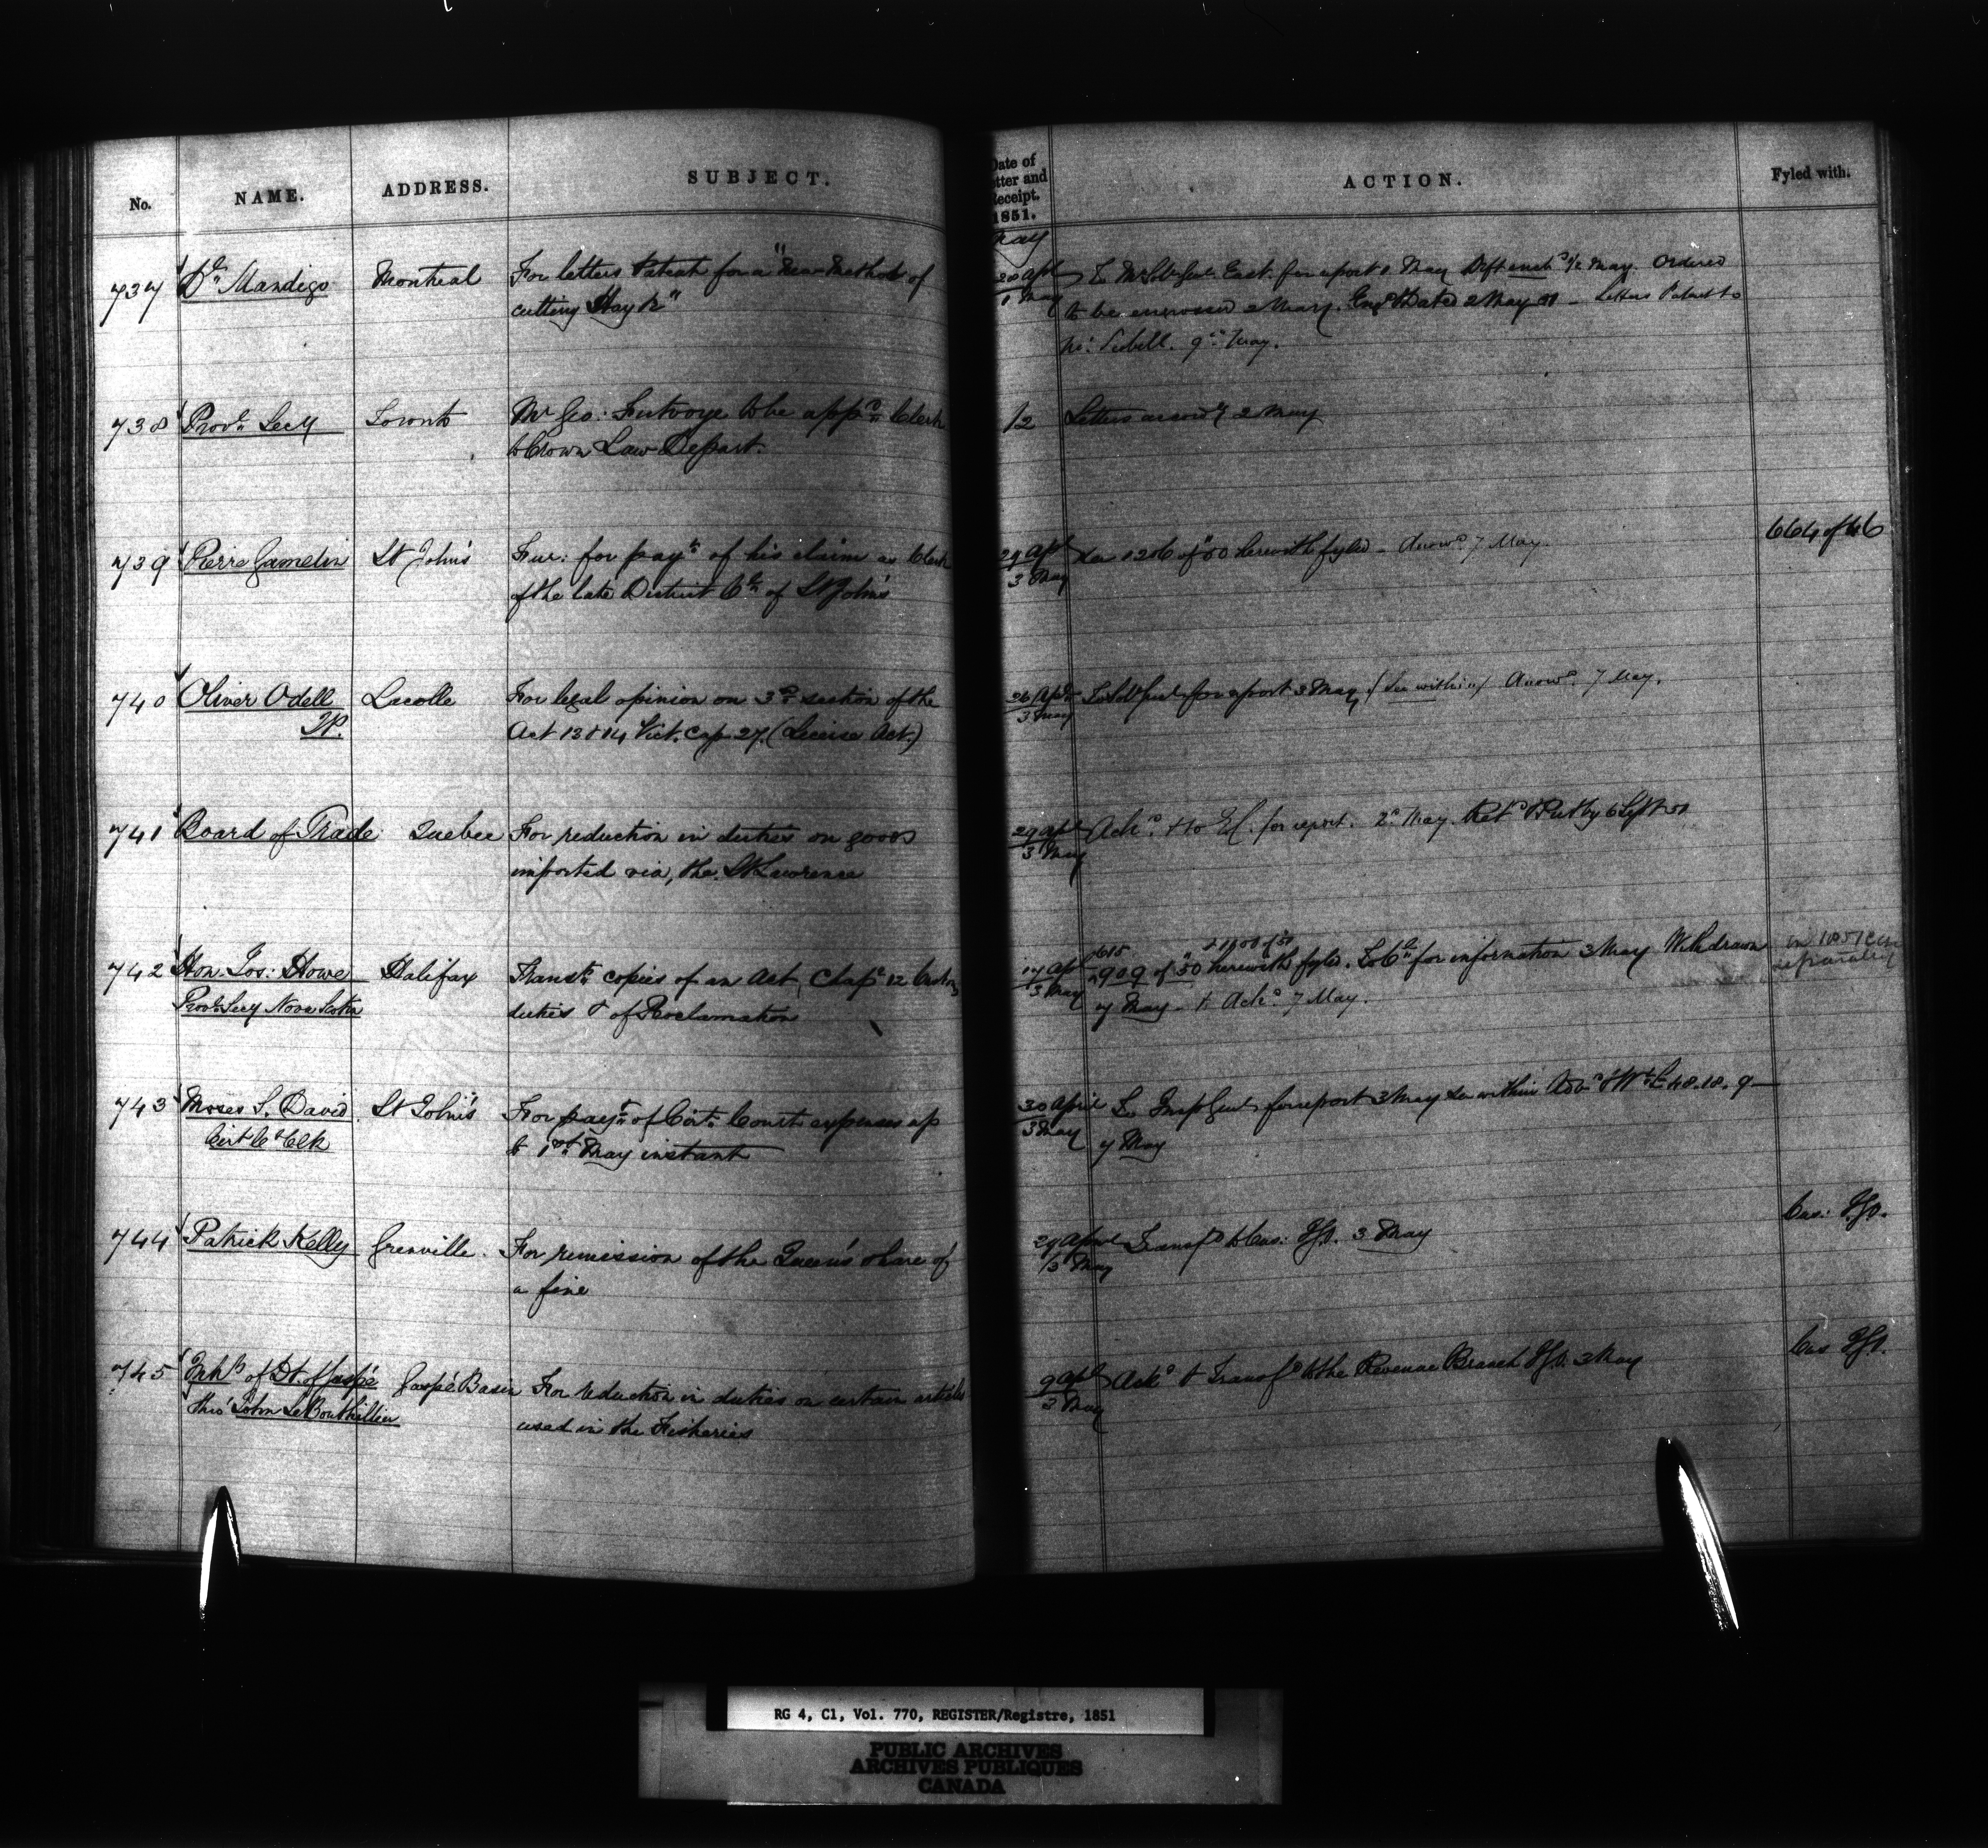 No. NAME. ADDRESS. SUBJECT.
737 Dr Mandigo Montreal For letters Patent for a "New Method of
cutting Hay &c"
738 Provl Secy Toronto Mr Geo: Futvoye to be appd Clerk
to Crown Law Depart.
739 Pierre Gamelin St John's Fur: for payt of his claim as Clerk
of the late District Ct of St John's
740 Oliver Odell Lacolle For legal opinion on 3d section of the
JP. Act 13 & 14 Vict. Cap 27. (License Act.)
741 Board of Trade Quebec For reduction in duties on goods
imported via, the St Lawrence
742 Hon. Jos: Howe Halifax Transtg copies of an Act, Chapr 12 Customs
Provl Secy Nova Scotia duties & of Proclamation
743 Moses S. David St John's For payt of Cirt Court expenses up
Cirt Ct Clk to 1st May instant
744 Patrick Kelly Grenville. For remission of the Queen's share of
a fine
745 Inhts of Dt. of Gaspé Gaspé Basin For reduction in duties on certain articles
thro' John Le Bouthillier used in the Fisheries
Date of
Letter and
Receipt.
1851.
ACTION. Fyled with.
May
28 Apl To Mr Sol Genl East. for report 1 May Dft 1/2 May. Ordered
1 May to be engrossed 2 May. Engd & Dated 2 May 51 - Letters Patent to
9th May.
1/2 Letters accordy 2 May
664 of 46
29 Apl See 1206 of 50 herewith fyled - Answd. 7 May
3 May
26 Apl To Sol Genl for report 3 May (See within) Answd. 7 May.
3 May
29 Apl Ackd. & to E C. for report. 2d May. Retd 6 Sept 51
3 May
17 Apl 909 of 50 herewith fyled. To for information 3 May Withdrawn
3 May 7 May - & Ackd 7 May.
separately
30 April To Insp Genl for report 3 May See within Adv & Wt £48.18.9
3 May 7 May
Cus: Dpt.
29 April Transfd to Cus: Dpt. 3 May
/3 May
Cus Dpt.
9 Apl Ackd & Transfd to the Revenue Branch Dpt. 3 May
3 May
RG 4, C1, Vol. 770, REGISTER/Registre, 1851
PUBLIC ARCHIVES
ARCHIVES PUBLIQUES
CANADA